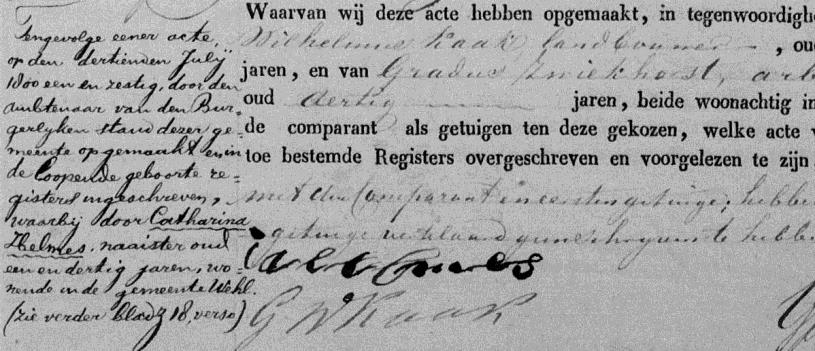 Tengevolge eener acte,
op den dertienden July
1800 een en zestig, door den
ambtenaar van den Bur=
gerlyken stand dezer ge=
meente opgemaakt en in
de loopende geboorte re=
gisters ingeschreven,
waarbij door Catharina
Helmes, naaister oud
een en dertig jaren, wo=
nende in de gemeente Wehl.
(zie verder bladz 18, verso)
Waarvan wij deze acte hebben opgemaakt, in tegenwoordigh
Wilhelmus Kaak landbouwer, ou
jaren, en van Gradus arb
oud dertig jaren, beide woonachtig in
de comparant als getuigen ten deze gekozen, welke acte v
toe bestemde Registers overgeschreven en voorgelezen te zijn
met den Comparant en eersten getuige; hebbe
getuige verklaard geene te hebbe
G W Kaak